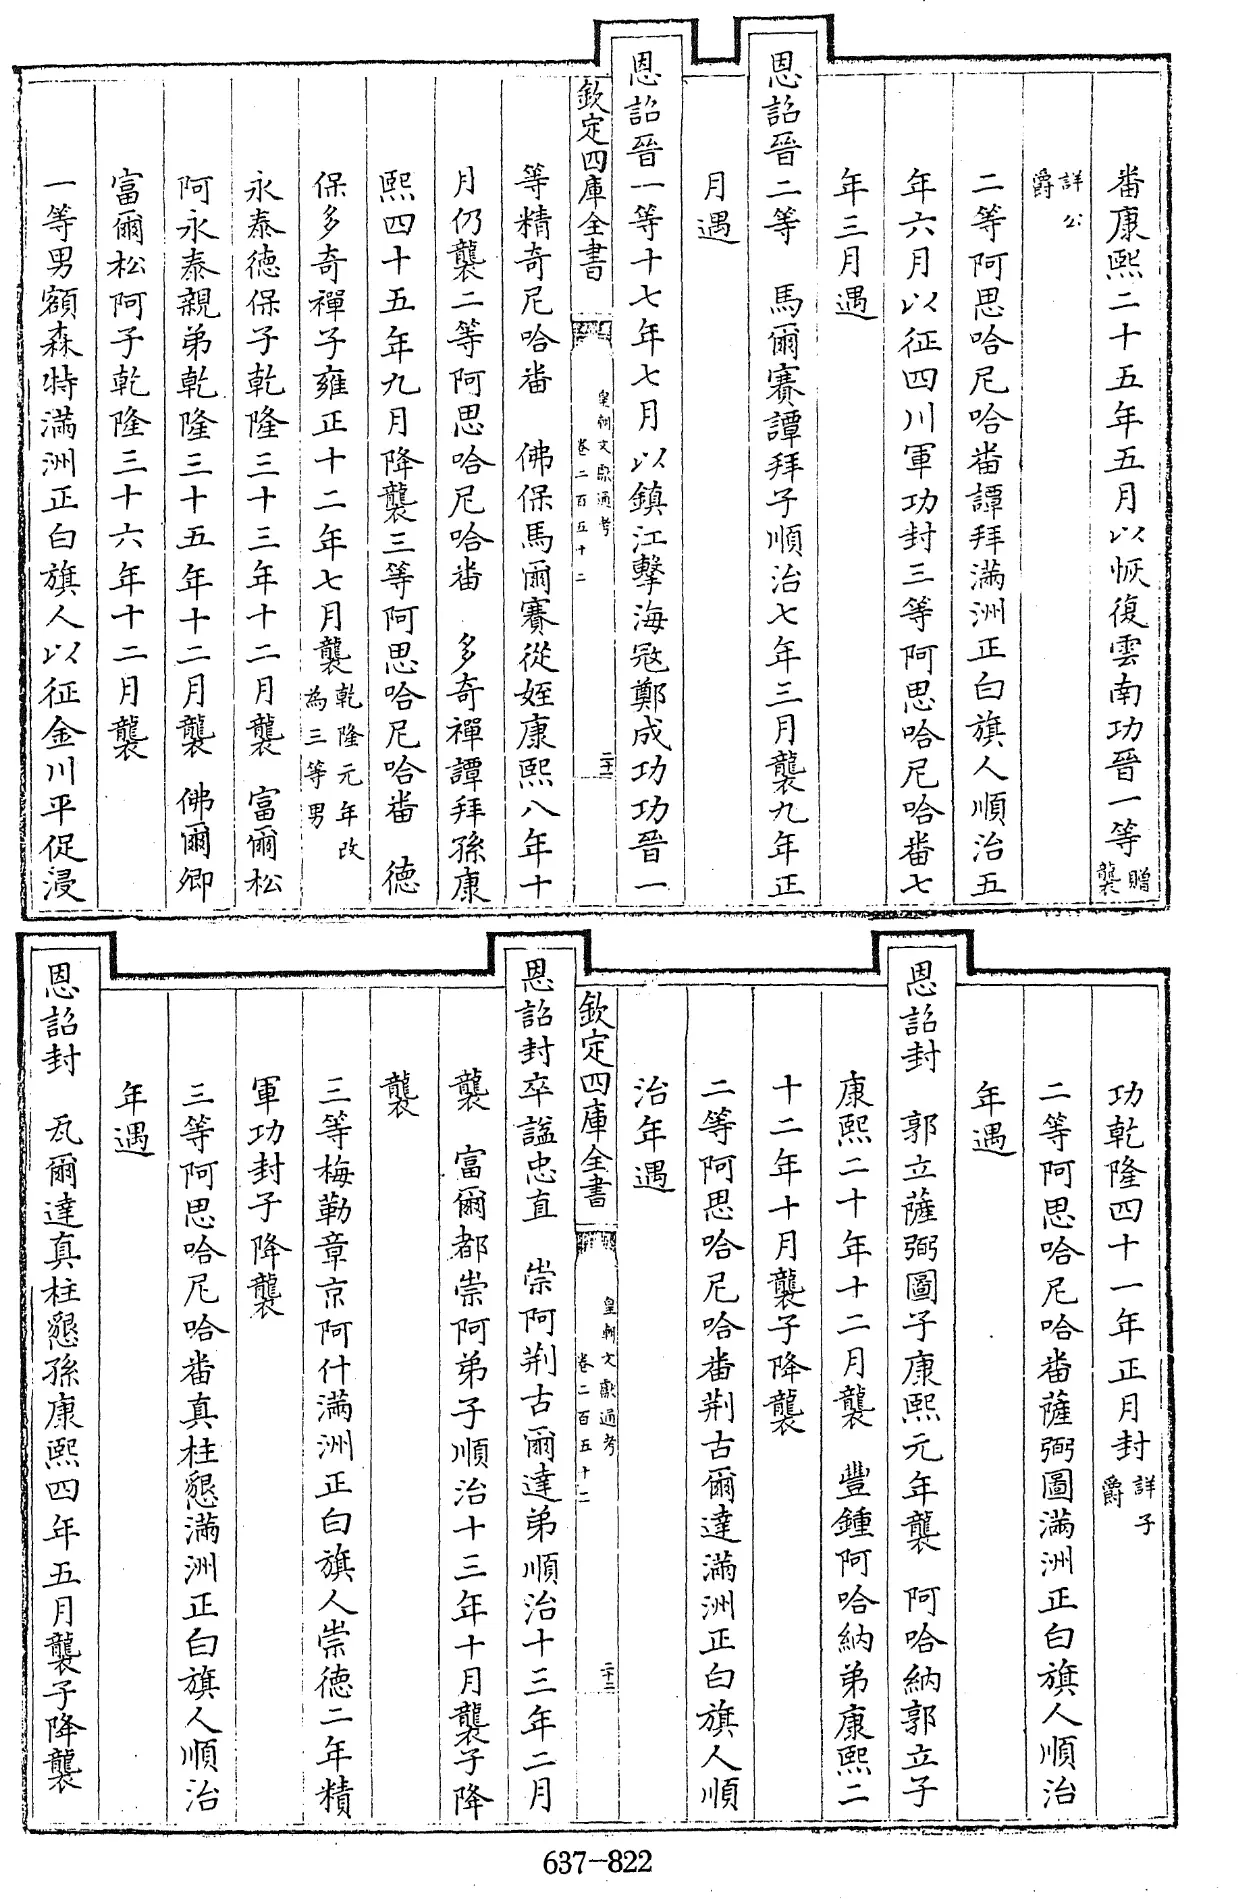 番康熙二十五年五月以恢復雲南功晉一等贈襲
詳公爵
二等阿思哈尼哈番譚拜滿洲正白旗人順治五
年六月以征四川軍功封三等阿思哈尼哈番七
年三月遇
恩詔晉二等　馬爾賽譚拜子順治七年三月襲九年正
月遇
恩詔晉一等十七年七月以鎮江擊海寇鄭成功功晉一
欽定四庫全書　皇朝文獻通考卷二百五十二　二十一
等精奇尼哈番　佛保馬爾賽從姪康熙八年十
月仍襲二等阿思哈尼哈番　多奇禪譚拜孫康
熙四十五年九月降襲三等阿思哈尼哈番　德
保多奇禪子雍正十二年七月襲乾隆元年改為三等男
永泰德保子乾隆三十三年十二月襲　富爾松
阿永泰親弟乾隆三十五年十二月襲　佛爾卿
富爾松阿子乾隆三十六年十二月襲
一等男額森特滿洲正白旗人以征金川平促浸
功乾隆四十一年正月封詳子爵
二等阿思哈尼哈番薩弼圖滿洲正白旗人順治
年遇
恩詔封　郭立薩弼圖子康熙元年襲　阿哈納郭立子
康熙二十年十二月襲　豐鍾阿哈納弟康熙二
十二年十月襲子降襲
二等阿思哈尼哈番荆古爾達滿洲正白旗人順
治年遇
欽定四庫全書　皇朝文獻通考卷二百五十二　二十二
恩詔封卒諡忠直　崇阿荆古爾達弟順治十三年二月
襲　富爾都崇阿弟子順治十三年十月襲子降
襲
三等梅勒章京阿什滿洲正白旗人崇德二年積
軍功封子降襲
三等阿思哈尼哈番真柱懇滿洲正白旗人順治
年遇
恩詔封　瓦爾達真柱懇孫康熙四年五月襲子降襲
637-822